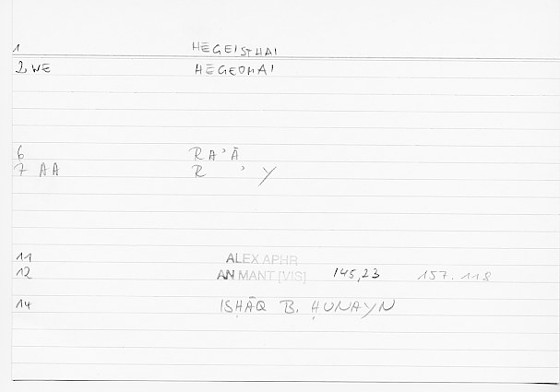 1 HEGEISTHAI
2 WE HEGEOMAI
6 RAʾĀ
7 AA R ʾ Y
11 ALEX APHR
12 AN MANT [VIS] 145,23 157.118
14 ISḤĀQ B. ḤUNAYN